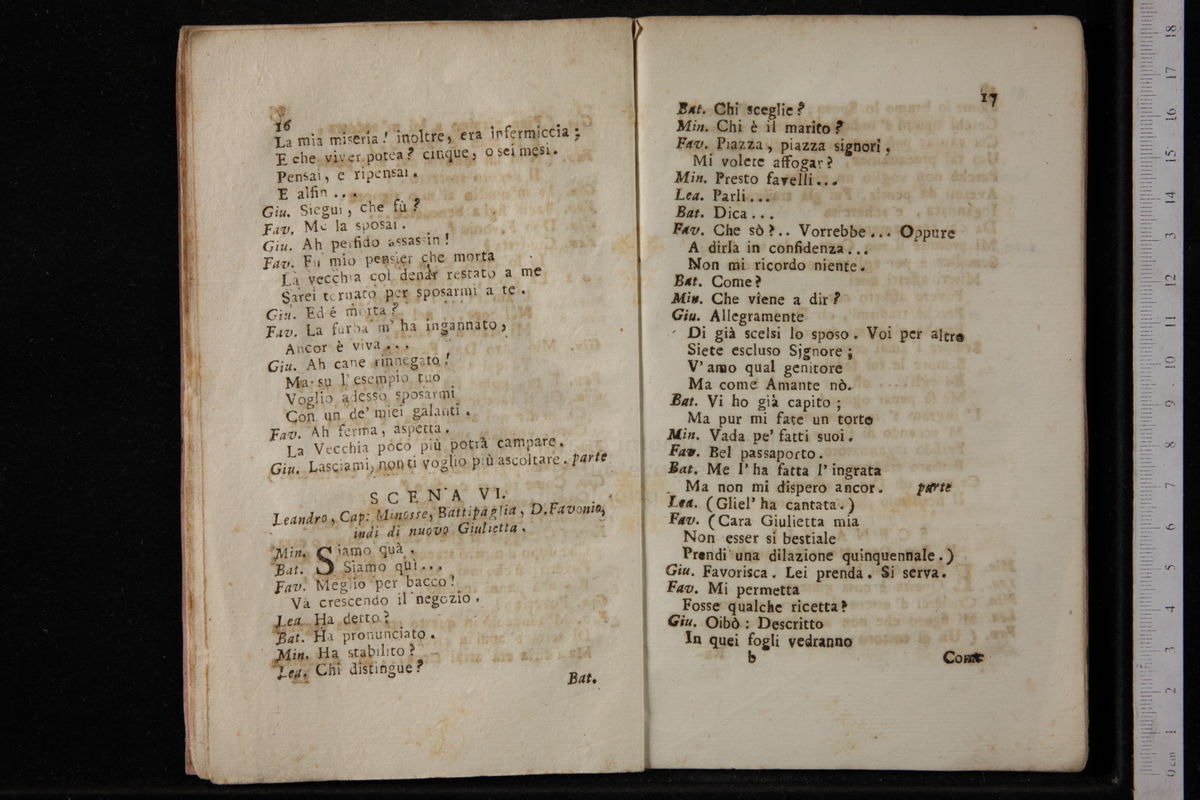 16
La mia miseria! inoltre, era infermiccia;
E che viver potea? cinque, o sei mesi.
Pensai, e ripensai.
E alfin...
Giu. Siegui, che fù?
Fav. Me la sposai.
Giu. Ah perfido assassin!
Fav. Fu mio pensier che morta
La vecchia col denar restato a me
Sarei tornato per sposarmi a te.
Giu. Ed é morta?
Fav. La furba m'ha ingannato,
Ancor è viva...
Giu. Ah cane rinnegato!
Ma su l'esempio tuo
Voglio adesso sposarmi
Con un de' miei galanti.
Fav. Ah ferma, aspetta.
La Vecchia poco più potrà campare.
Giu. Lasciami, non ti voglio più ascoltare. parte
SCENA VI.
Leandro, Cap: Minosse, Battipaglia, D. Favonio,
indi di nuovo Giulietta.
Min. Siamo quà.
Bat. Siamo quì...
Fav. Meglio per bacco!
Và crescendo il negozio.
Lea. Ha detto?
Bat. Ha pronunciato.
Min. Ha stabilito?
Lea. Chi distingue?
Bat.
17
Bat. Chi sceglie?
Min. Chi è il marito?
Fav. Piazza, piazza signori,
Mi volete affogar?
Min. Presto favelli...
Lea. Parli...
Bat. Dica...
Fav. Che sò?.. Vorrebbe... Oppure
A dirla in confidenza...
Non mi ricordo niente.
Bat. Come?
Min. Che viene a dir?
Giu. Allegramente
Di già scelsi lo sposo. Voi per altro
Siete escluso Signore;
V'amo qual genitore
Ma come Amante nò.
Bat. Vi ho già capito;
Ma pur mi fate un torto
Min. Vada pe' fatti suoi.
Fav. Bel passaporto.
Bat. Me l'ha fatta l'ingrata
Ma non mi dispero ancor. parte
Lea. (Gliel'ha cantata.)
Fav. (Cara Giulietta mia
Non esser sì bestiale
Prendi una dilazione quinquennale.)
Giu. Favorisca. Lei prenda. Si serva.
Fav. Mi permetta
Fosse qualche ricetta?
Giu. Oibò: Descritto
In quei fogli vedranno
b Come